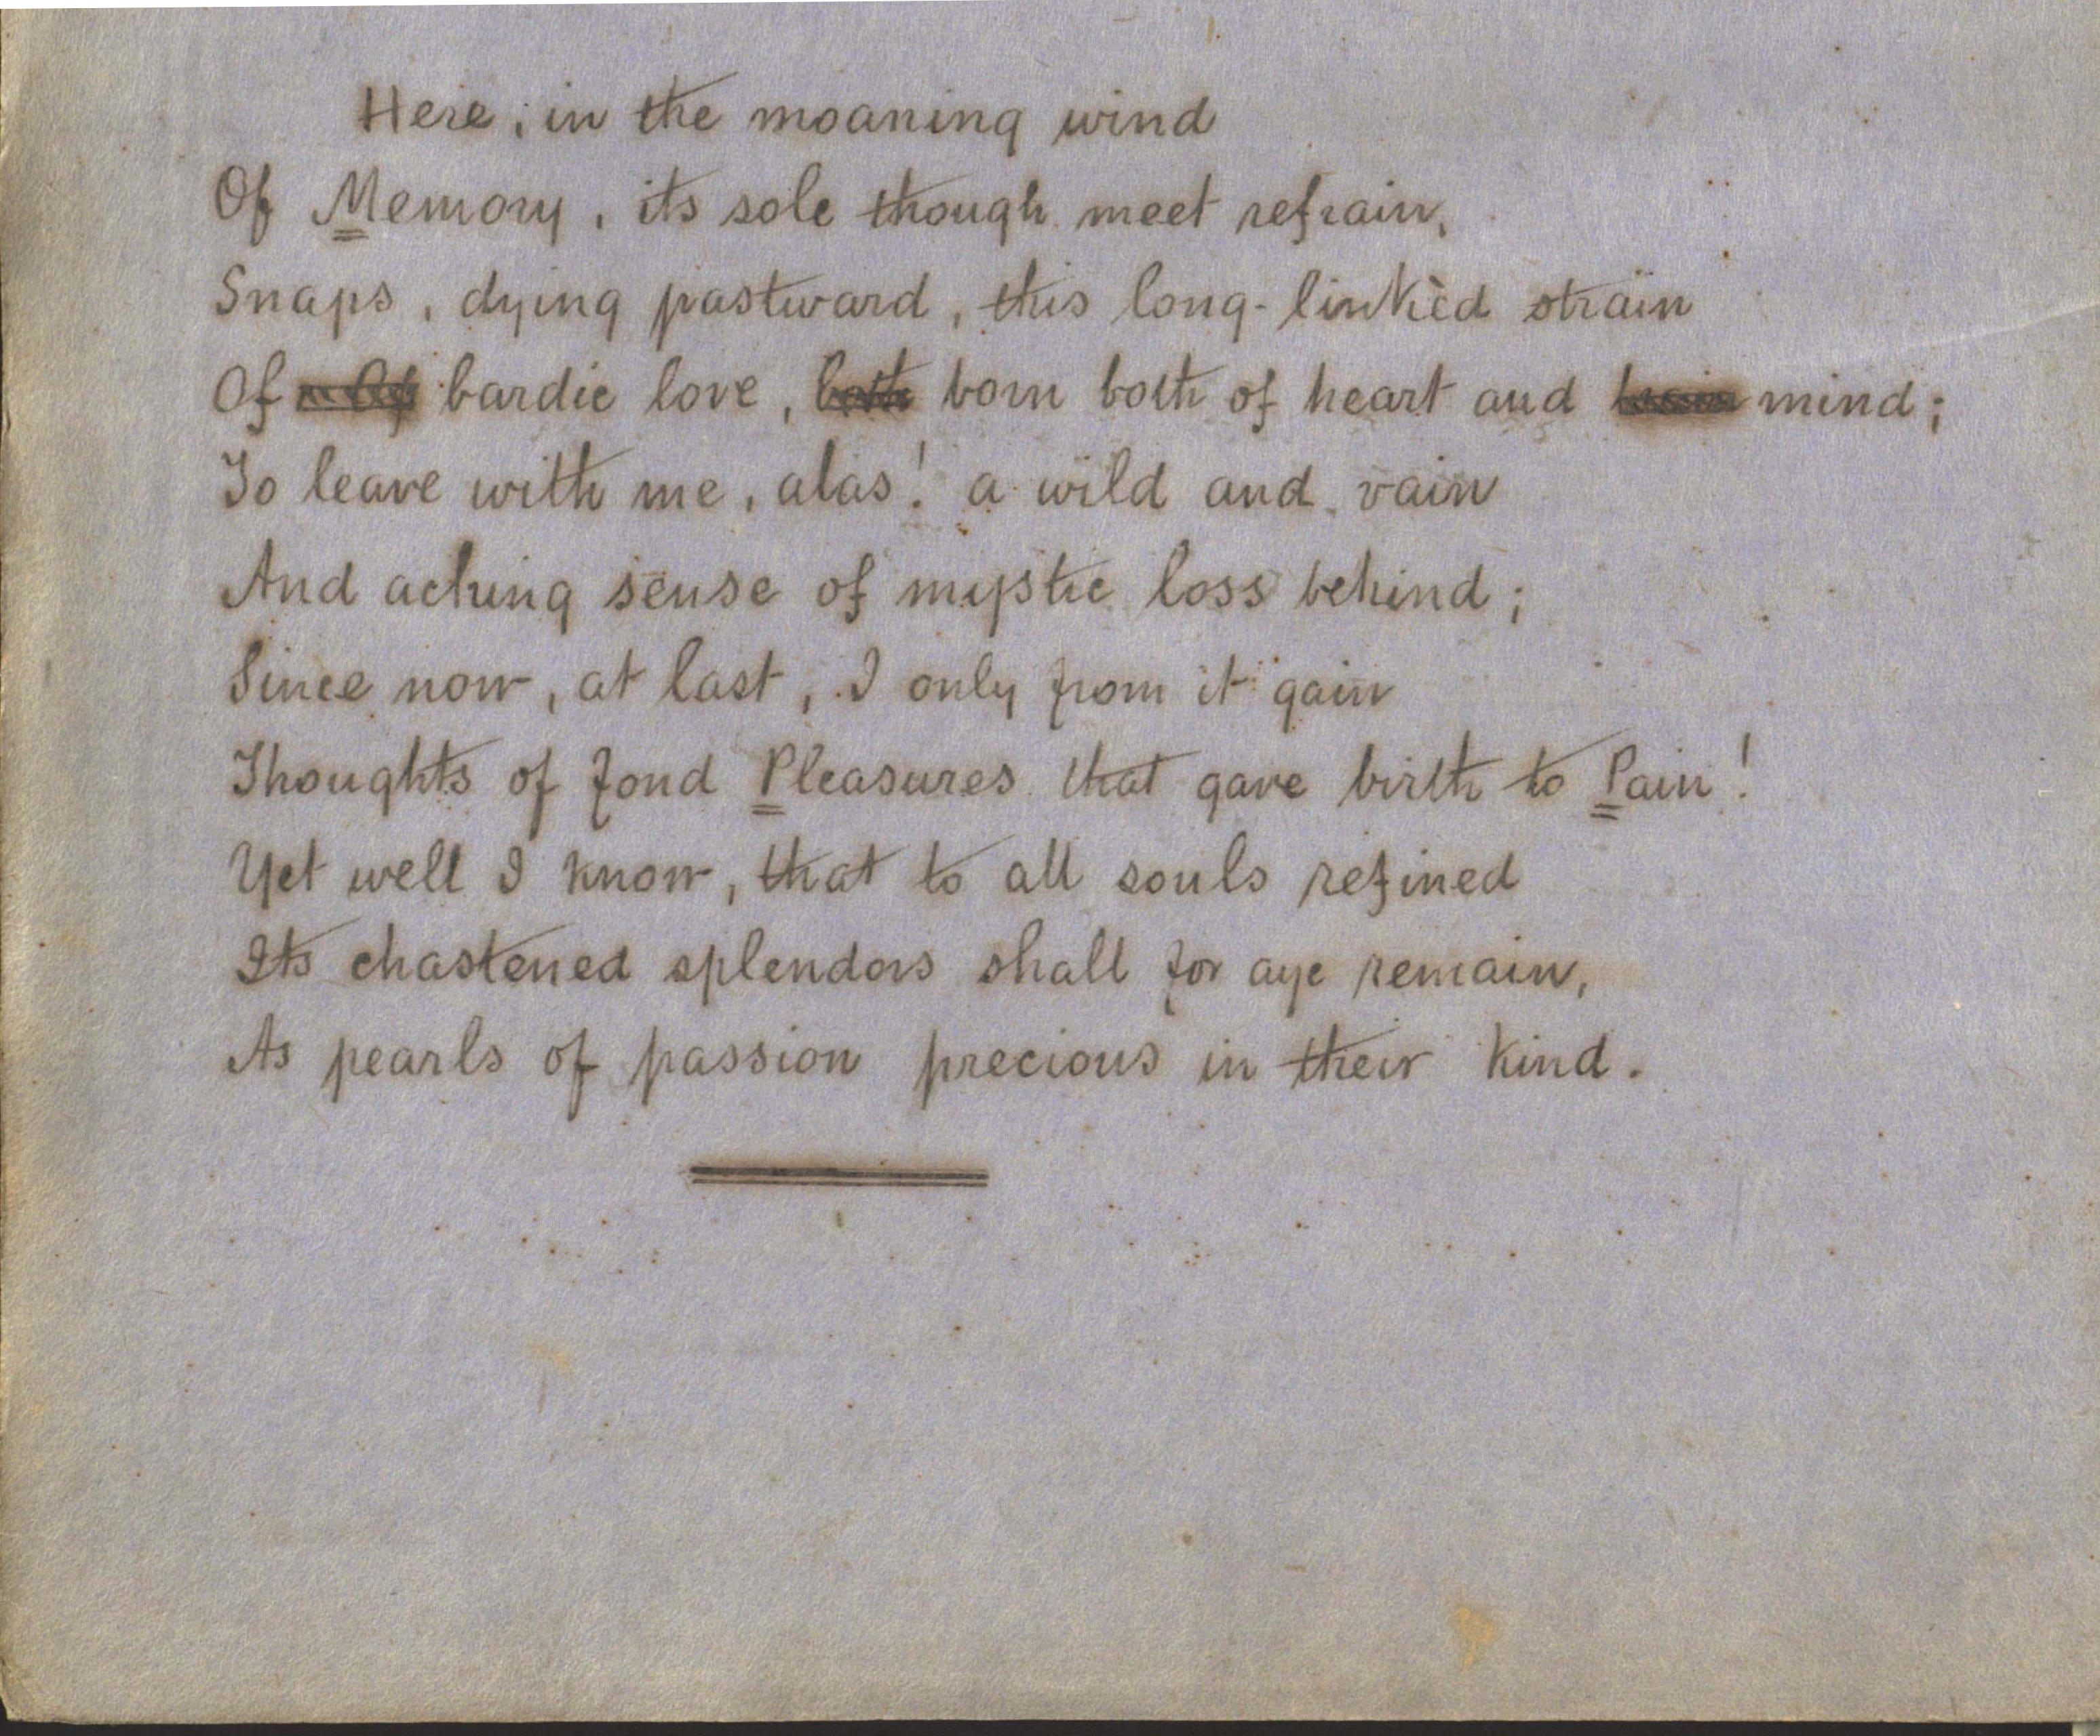 Here, in the moaning wind
Of Memory, its sole though meet refrain,
Snaps, dying pastward, this long-linkèd strain
Of bardic love, both born both of heart and brain mind;
To leave with me, alas! a wild and vain
And aching sense of mystic loss behind;
Since now, at last, I only from it gain
Thoughts of fond Pleasures that gave birth to Pain!
Yet well I know, that to all souls refined
Its chastened splendors shall for aye remain,
As pearls of passion precious in their kind.